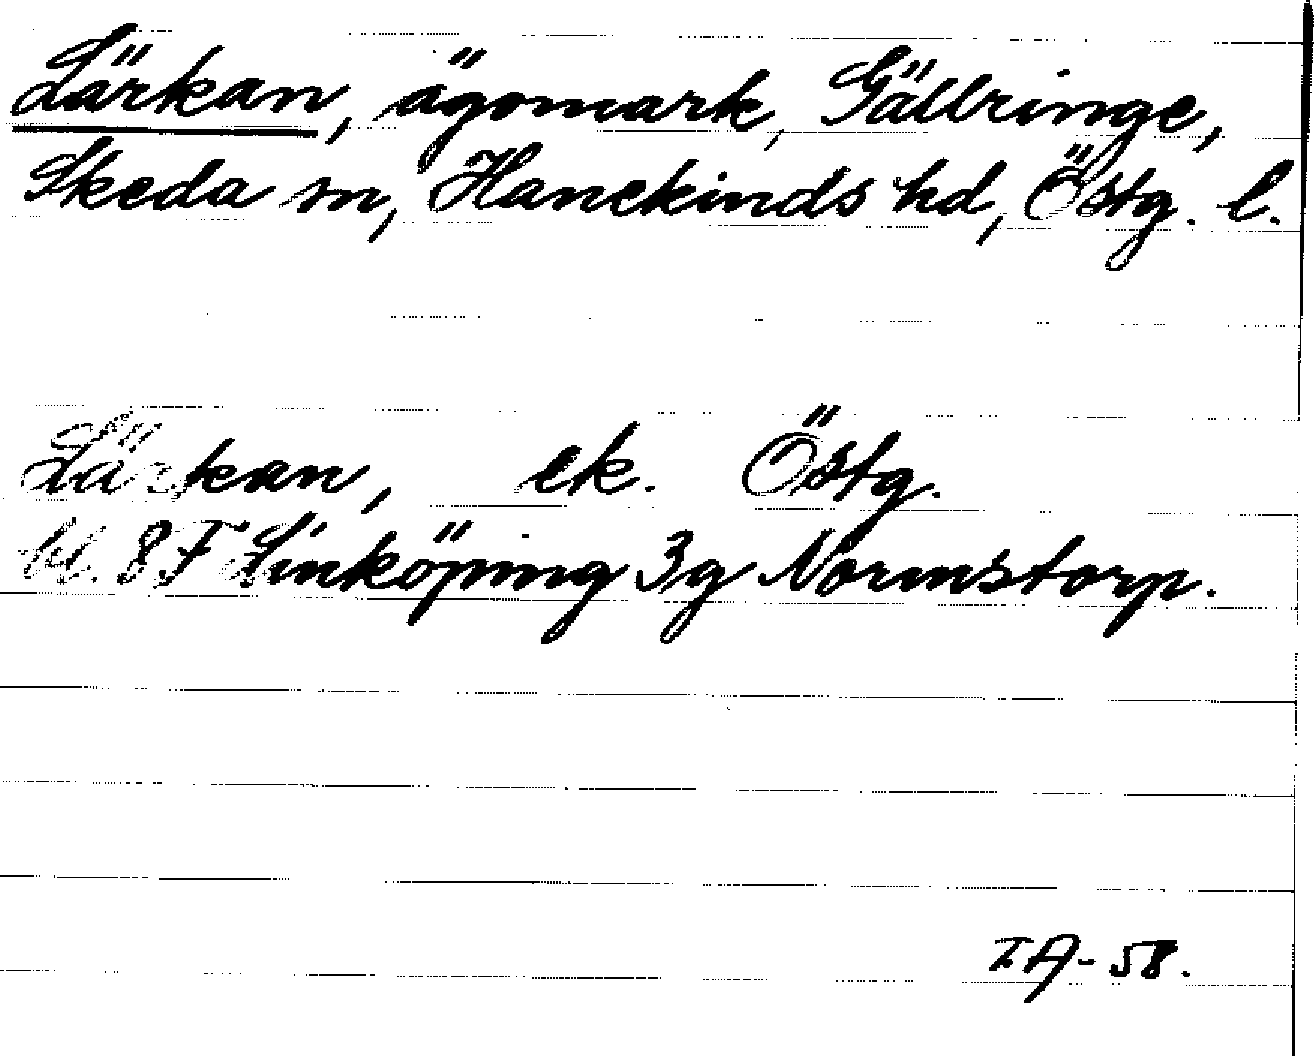 Lärkan, ägomark, Gällringe,
Skeda sn, Hanekinds hd, Östg. l.
Lärkan, ek. Östg.
bl. 8F Linköping 3g Normstorp.
I.A-58.